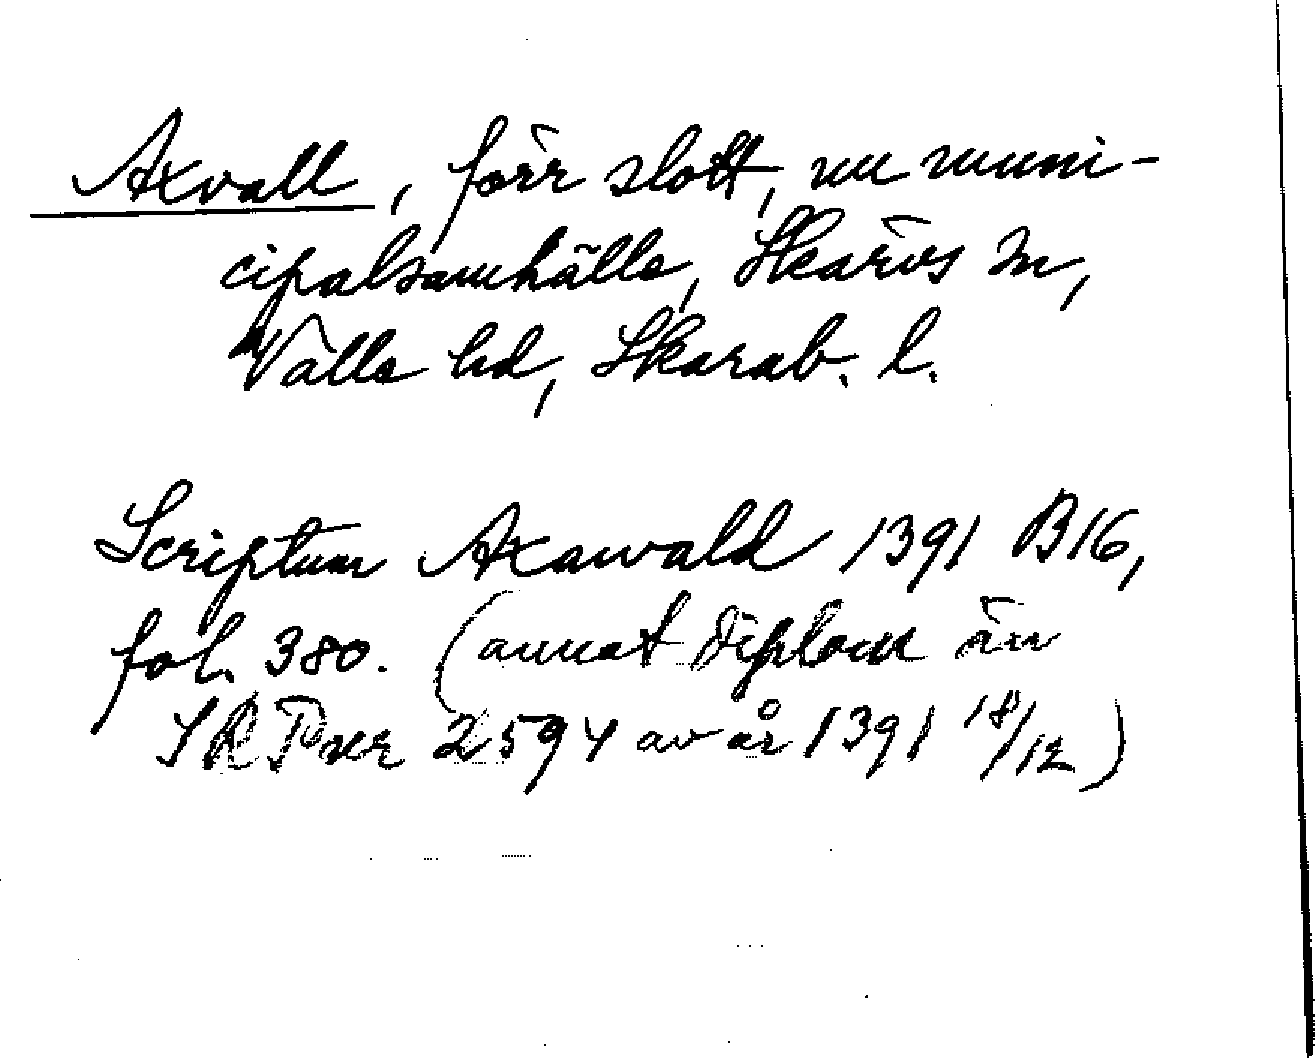 Axvall, förr slott, nu muni-
cipalsamhälle, Skärvs sn,
Valle hd, Skarab. l.
Scriptum Axawald 1391 B16,
fol. 380. (annat diplom än
SRP nr 2594 av år 1391 18/12)